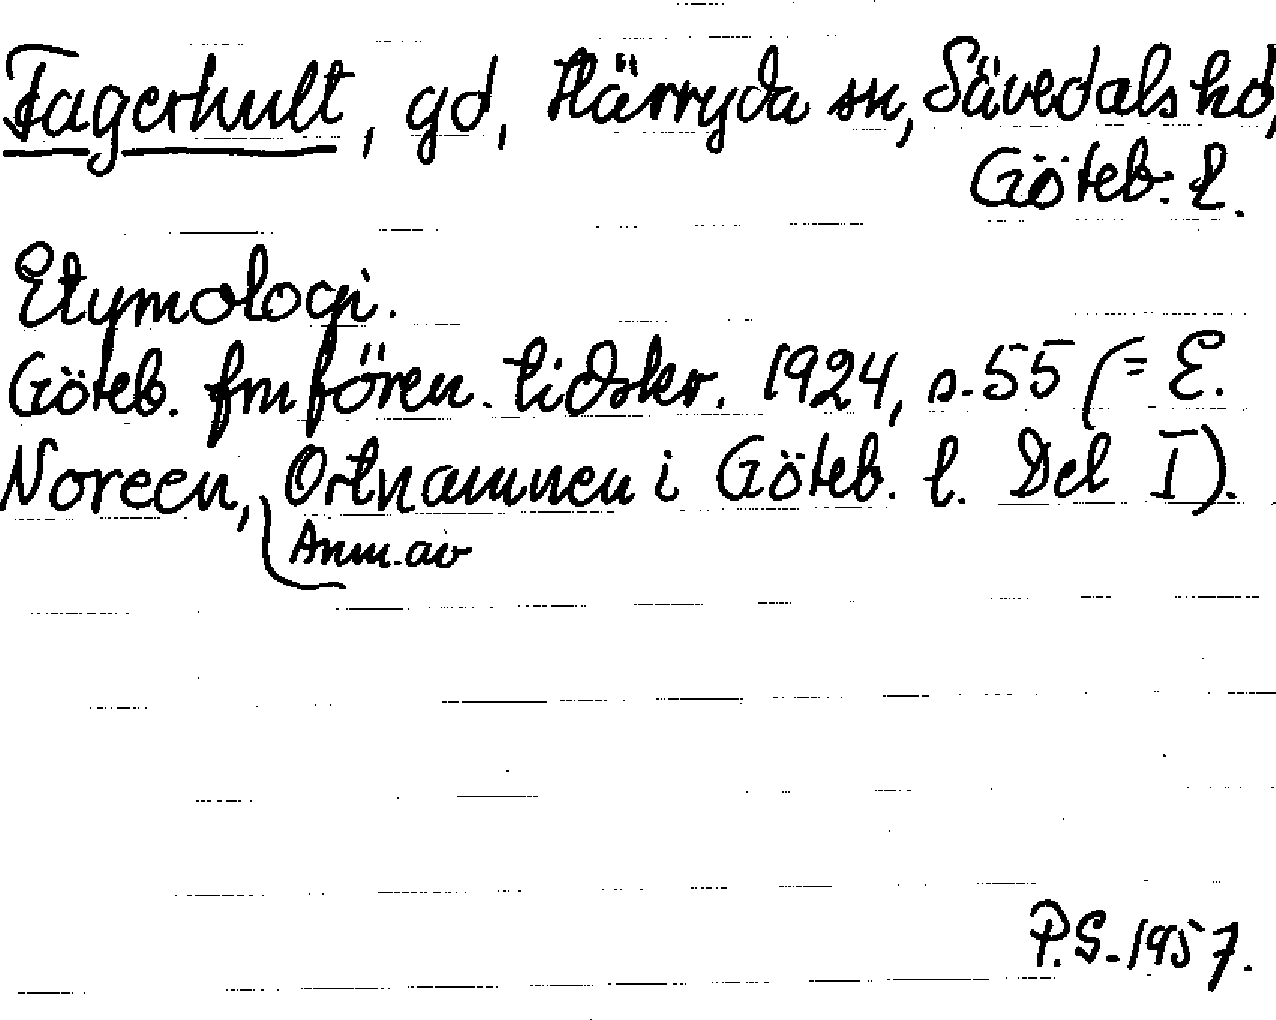 Fagerhult, gd, Härryda sn, Sävedals hd,
Göteb. l.
Etymologi.
Göteb. fmfören. tidskr. 1924, s. 55 (= E.
Noreen, Ortnamnen i Göteb. l. Del I).
Anm. av
P.S. 1957.